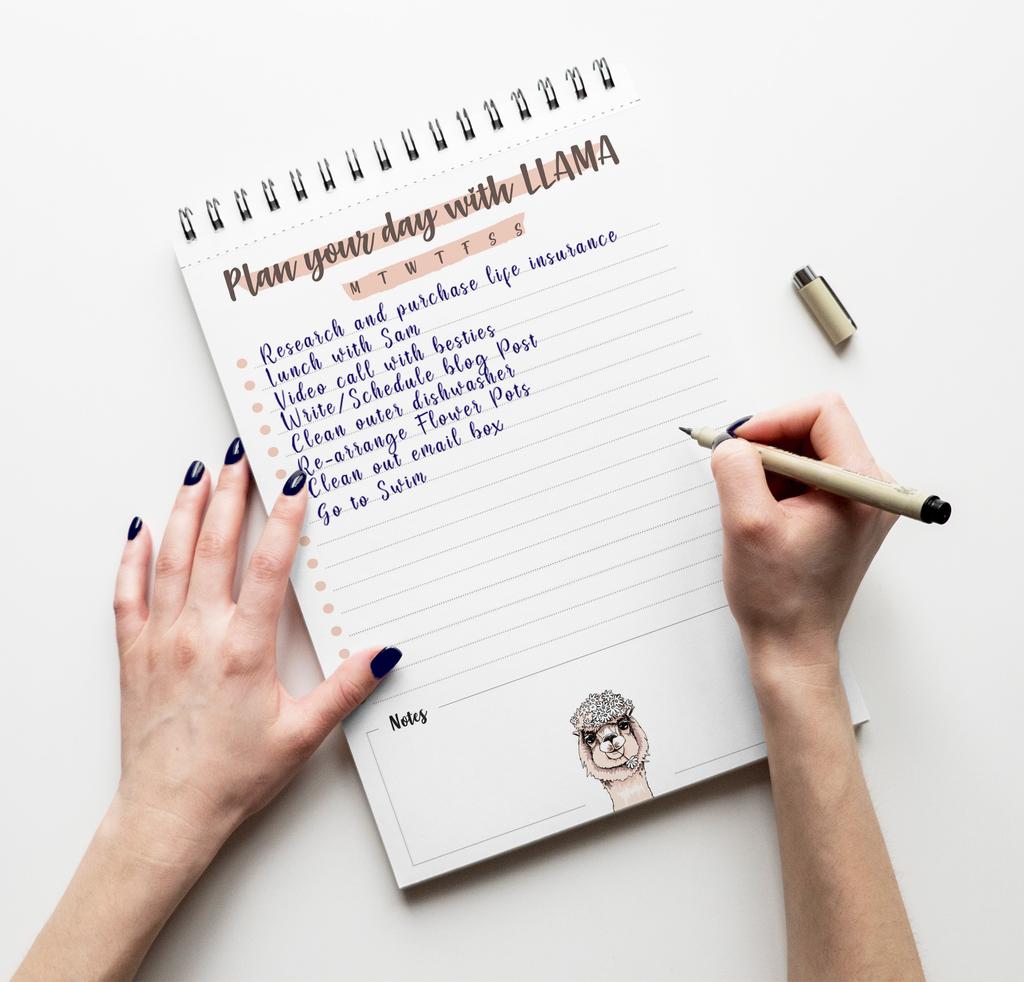 Plan your day with LLAMA
M T W T F S S
Research and purchase life insurance
Lunch with Sam
Video call with besties
Write/Schedule blog Post
Clean outer dishwasher
Re-arrange Flower Pots
Clean out email box
Go to Swim
Notes